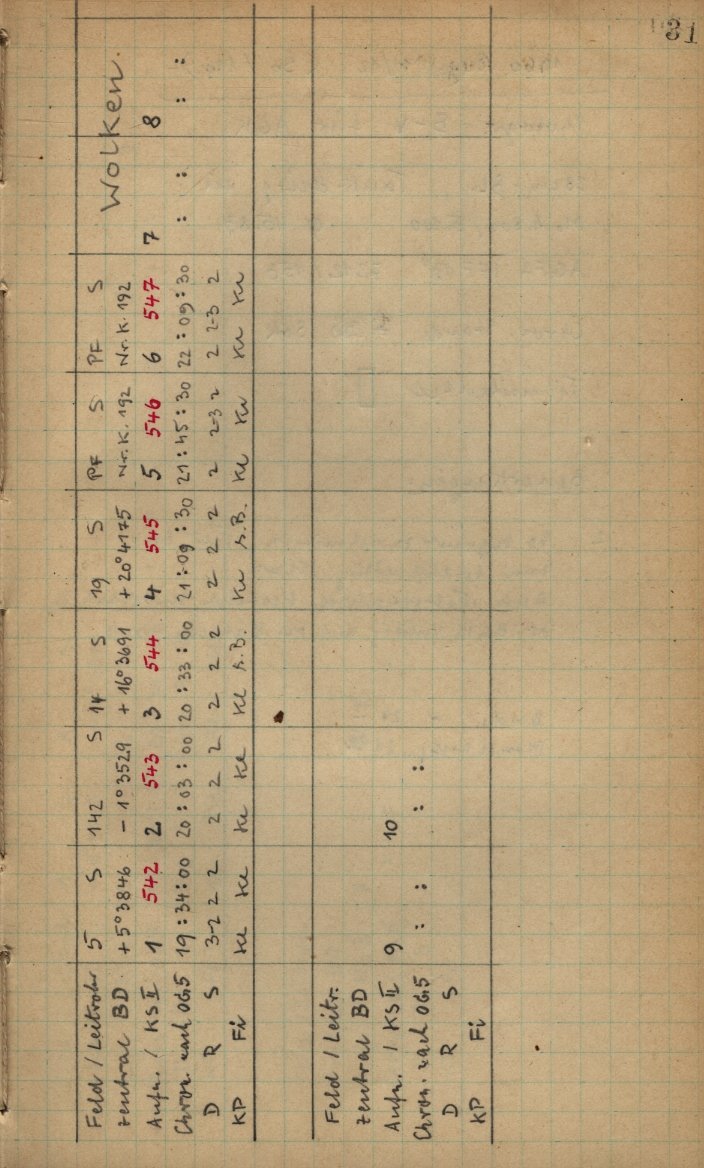 31
Feld / Leitrohr 5 S 142 S 14 S 19 S PF S PF S Wolken.
Zentral BD +5°3846 -1°3529 +16°3691 +20°4175 Nr. K. 192 Nr. K. 192
Aufn. / KS II 1 542 2 543 3 544 4 545 5 546 6 547 7 8
Chron. nach OG5 19:34:00 20:03:00 20:33:00 21:09:30 21:45:30 22:09:30 : : : :
D R S 3-2 2 2 2 2 2 2 2 2 2 2 2 2 2-3 2 2 2-3 2
KP Fi Ku Ku Ku Ku Ku s.B. Ku s.B. Ku Ku Ku Ku
Feld / Leitr.
Zentral BD
Aufn. / KS II 9 10
Chron. nach OG5 : : : :
D R S
KP Fi